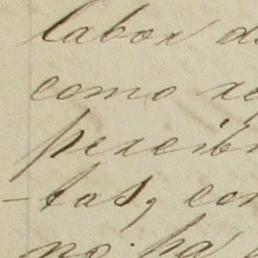 labor d
como re
percib
-tas, con
no ha